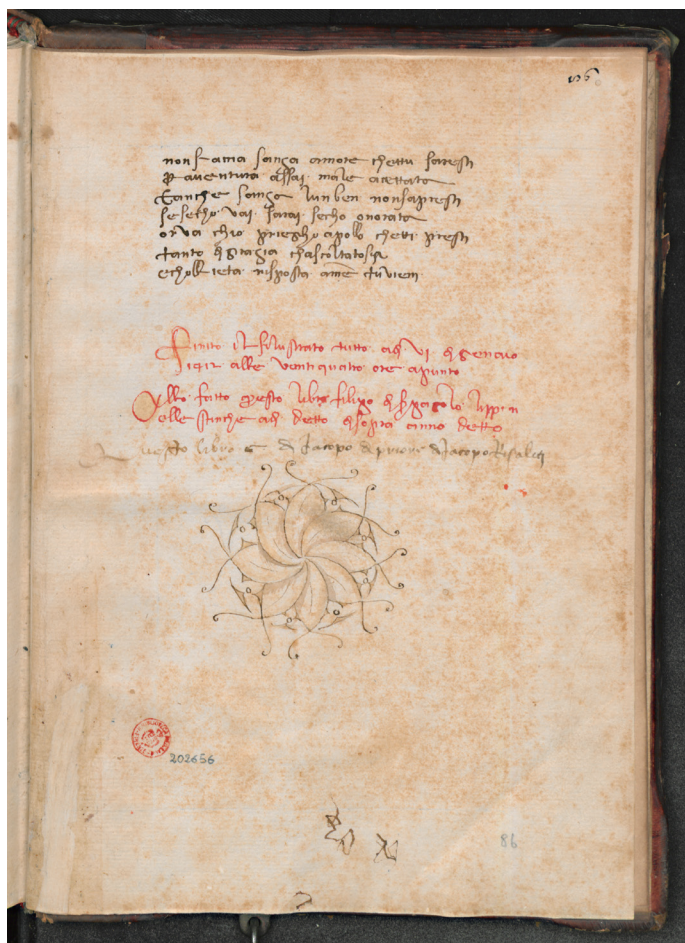 86
non fama sanza amore chettu faresti
p aventura assai male accettato
Eanche sanza lui ben non sapresti
se secho vai sarai secho onorato
or va chio priegho apollo cheti presti
tanto di grazia chascoltatosia
echollieta risposta ame tu vieni
Finito il filostrato tutto adi vi di gennaio
alle ventiquatro ore apunto
fatto questo libro filipo di lippi n
elle stinche adi detto di sopra anno detto
Questo libro e di Jacopo di Jacopo Risaliti
202656
86